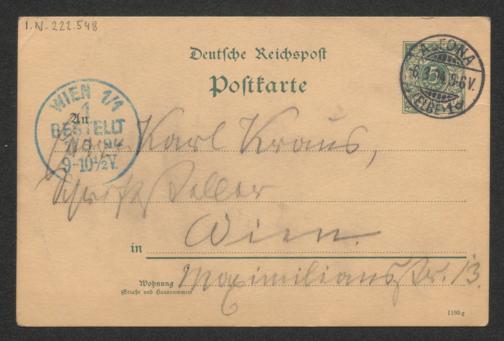 I.N. 222.548
Deutsche Reichspost
Postkarte
ALTONA
5-6V.
WIEN 1/1
BESTELLT
9-10½V.
An
Herrn Karl Kraus,
Schriftsteller
in Wien.
Wohnung
(Straße und Hausnummer)
Maximilianstr. 13.
1190g